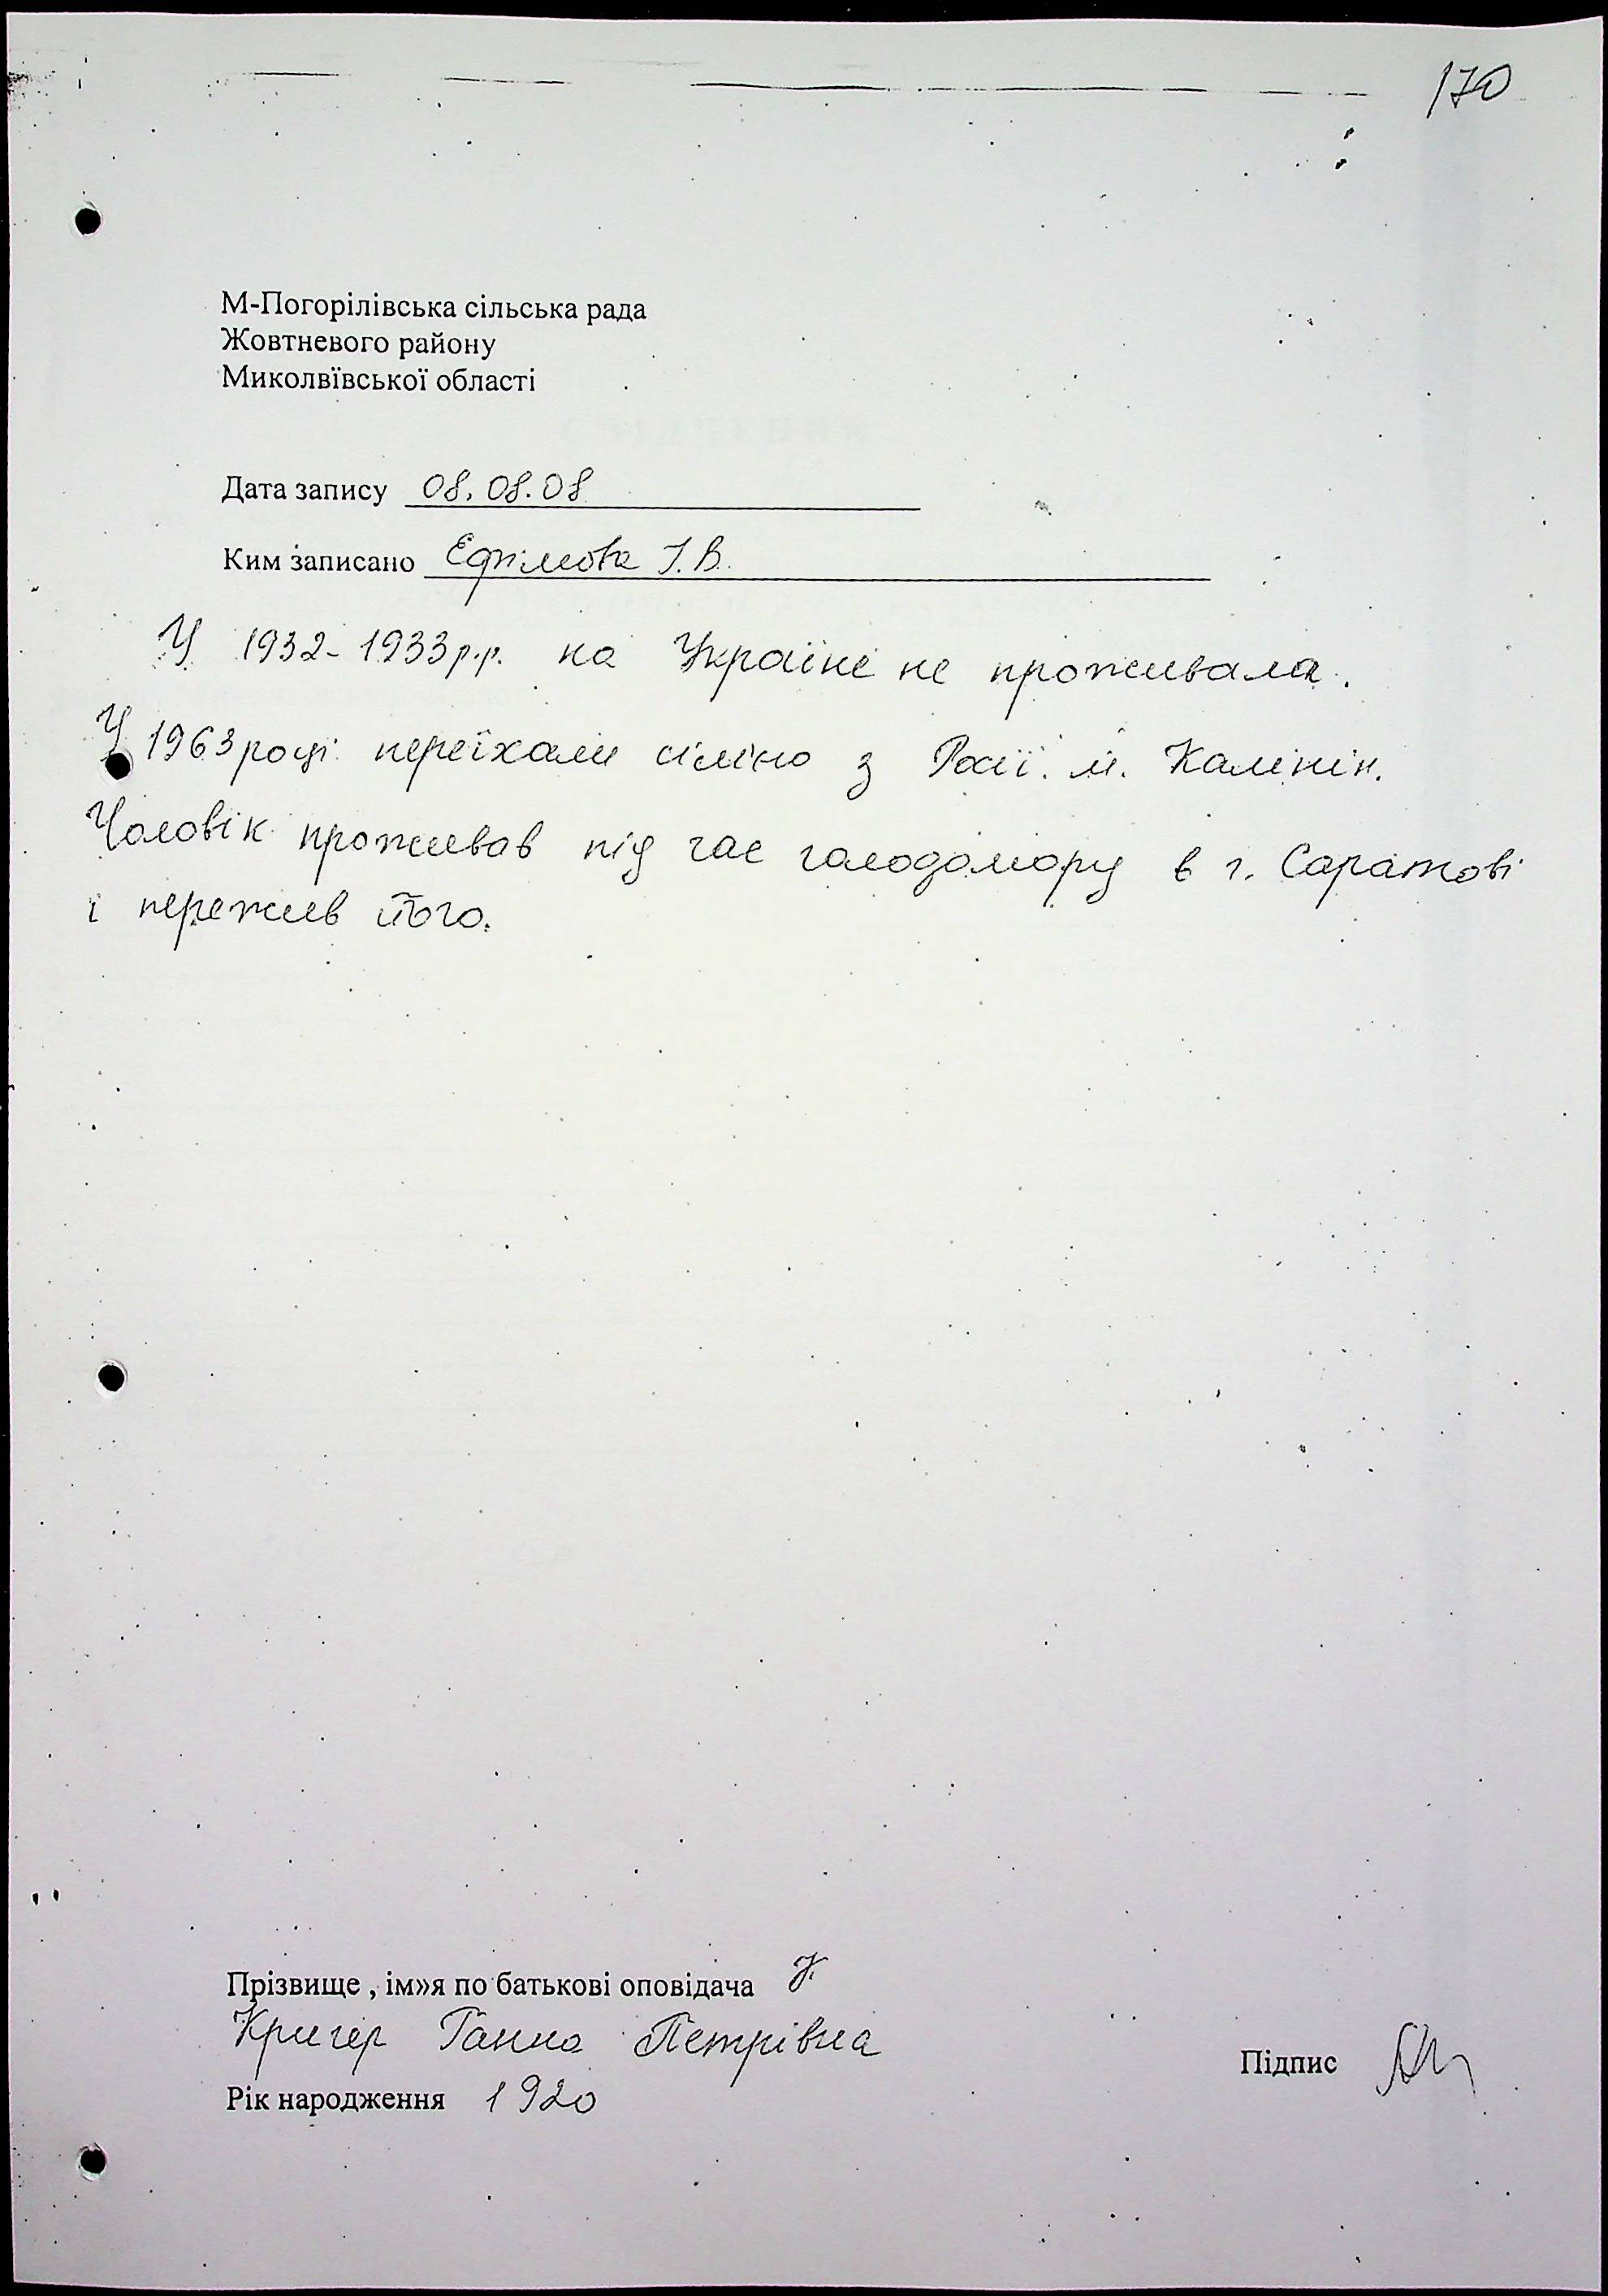 170
М-Погорілівська сільська рада
Жовтневого району
Миколвївської області
Дата запису 08.08.08
Ким записано Ефімова І.В.
У 1932-1933р.р. на Україні не проживала.
У 1963 році переїхали сім'єю з Росії. м. Калінін.
Чоловік проживав під час голодомору в г. Саратові
і пережив його.
Прізвище , ім»я по батькові оповідача К
Кригер Ганна Петрівна
Підпис
Рік народження 1920